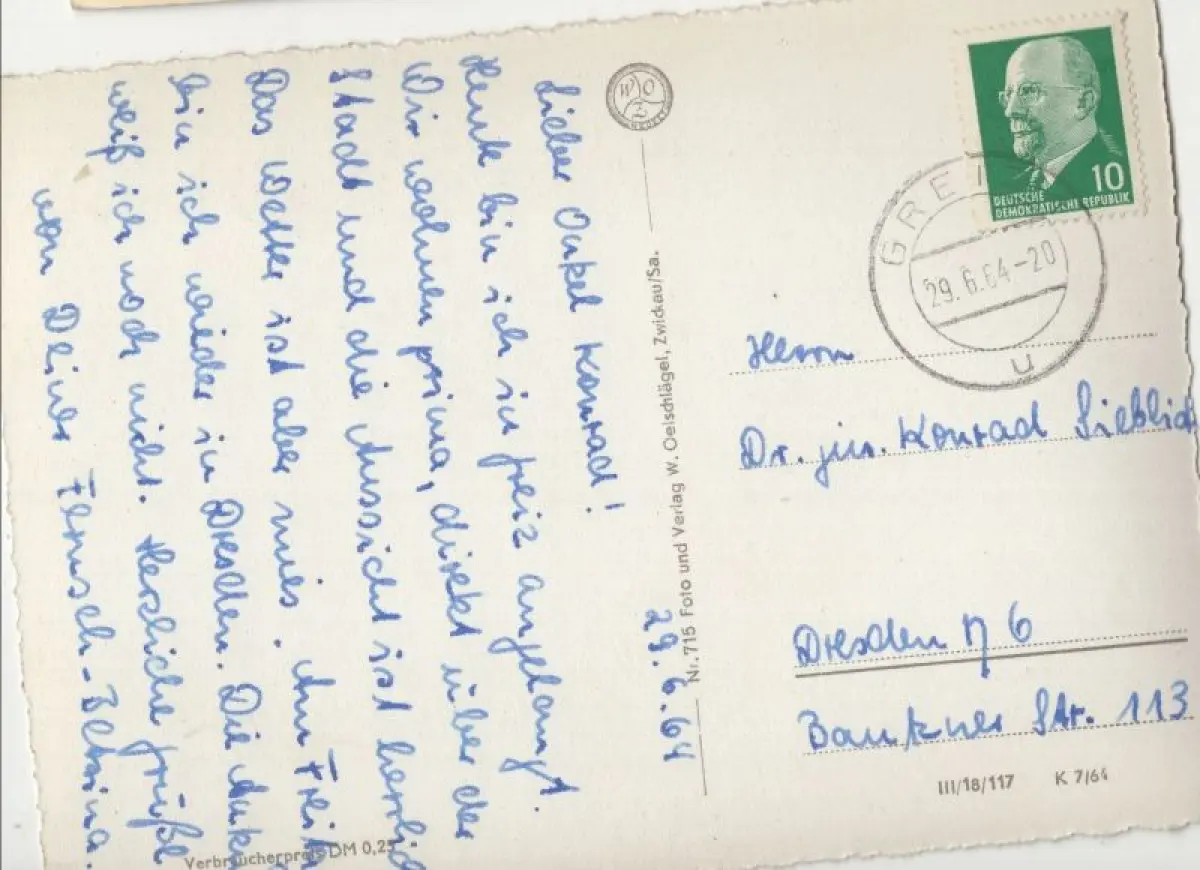 29.6.64
Lieber Onkel Konrad!
Heute bin ich in Greiz angelangt.
Wir wohnen prima, direkt über der
Stadt und die Aussicht ist herrlich
Das Wetter ist aber mies. Am Freit
bin ich wieder in Dresden. Die
weiß ich noch nicht. Herzliche Grüße
von Deiner Fernseh-Bettina.
Verbraucherpreis DM 0,25
WOZ
Nr. 715 Foto und Verlag W. Oelschlägel, Zwickau/Sa.
10
DEUTSCHE
DEMOKRATISCHE REPUBLIK
GREIZ
29.6.64-20
u
Herrn
Dr. jur. Konrad Sieblich
Dresden N 6
Bautzner Str. 113
III/18/117 K 7/64